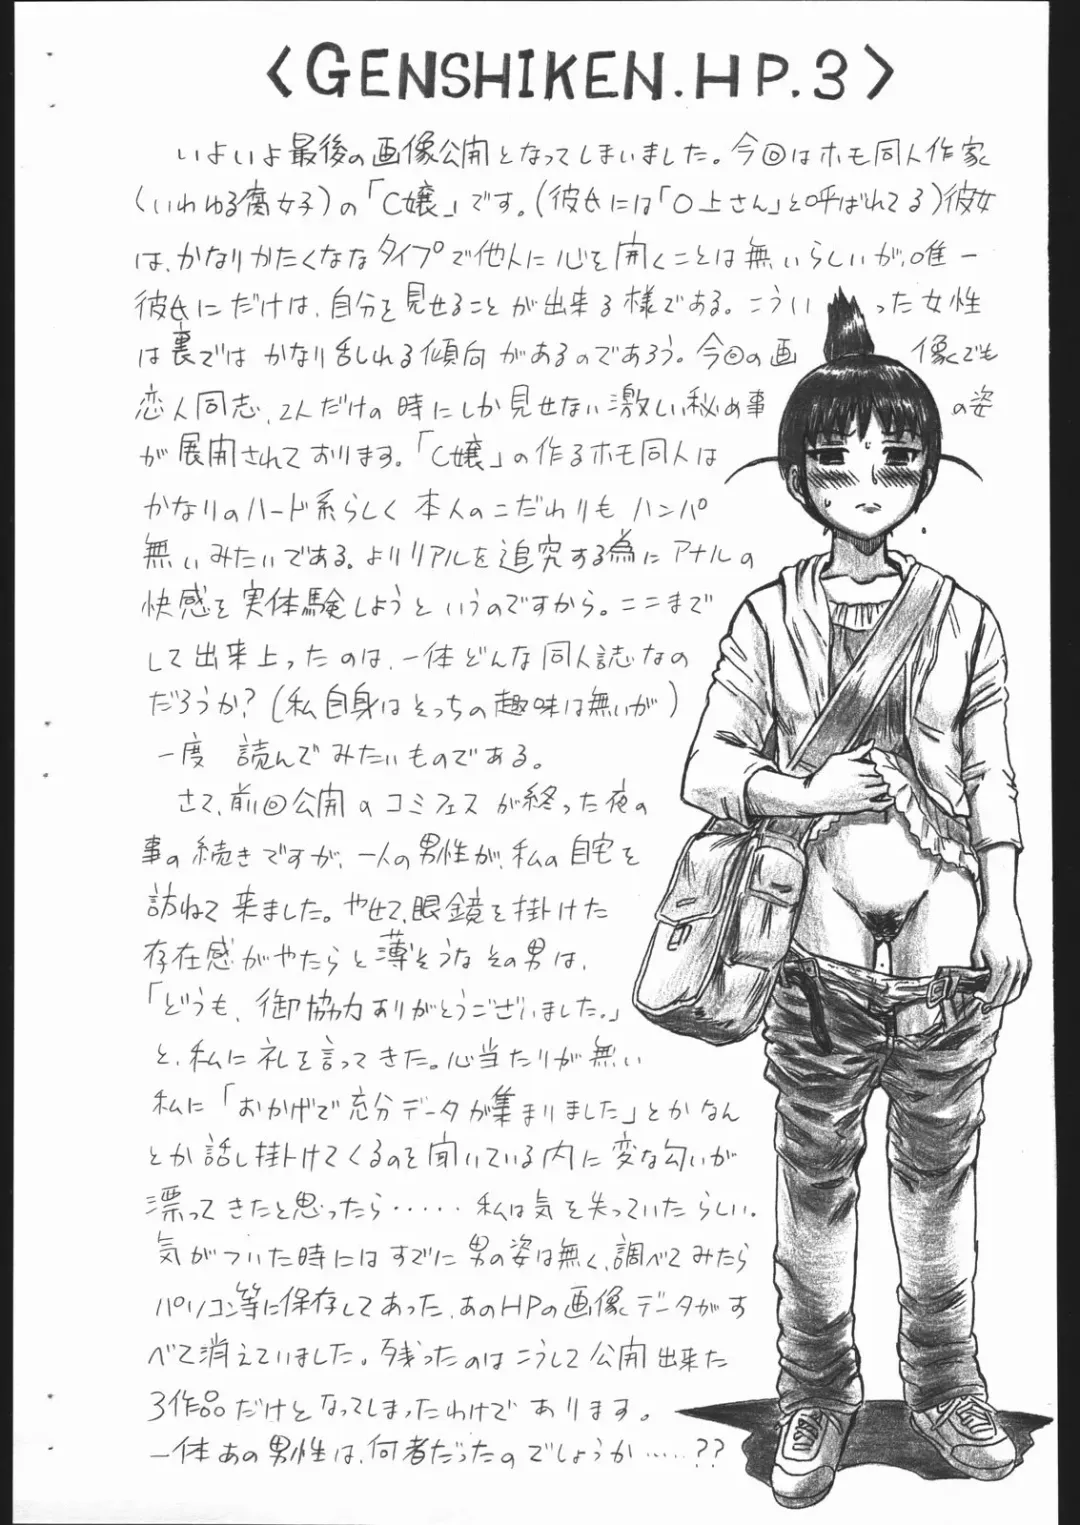 <GENSHIKEN.HP.3>
いよいよ最後の画像公開となってしまいました。今回はホモ同人作家
(いわゆる腐女子)の「C嬢」です。(彼氏には「O上さん」と呼ばれてる)彼女
は、かなりかたくななタイプで他人に心を開くことは無いらしいが、唯一
彼氏にだけは、自分を見せることが出来る様である。こういった女性
は裏ではかなり乱れる傾向があるのであろう。今回の画像でも
恋人同志、2人だけの時にしか見せない激しい秘め事の姿
が展開されております。「C嬢」の作るホモ同人は
かなりのハード系らしく本人のこだわりもハンパ
無いみたいである。よりリアルを追究する為にアナルの
快感を実体験しようというのですから。ここまで
して出来上ったのは、一体どんな同人誌なの
だろうか?(私自身はそっちの趣味は無いが)
一度 読んでみたいものである。
さて、前回公開のコミフェスが終った夜の
事の続きですが、一人の男性が、私の自宅を
訪ねて来ました。やせて、眼鏡を掛けた
存在感がやたらと薄そうなその男は、
「どうも、御協力ありがとうございました。」
と、私に礼を言ってきた。心当たりが無い
私に「おかげで充分データが集まりました」とかなん
とか話し掛けてくるのを聞いている内に変な匂いが
漂ってきたと思ったら・・・・・私は気を失っていたらしい。
気がついた時にはすでに男の姿は無く、調べてみたら
パソコン等に保存してあった、あのHPの画像データがす
べて消えていました。残ったのはこうして公開出来た
3作品だけとなってしまったわけであります。
一体あの男性は、何者だったのでしょうか……??